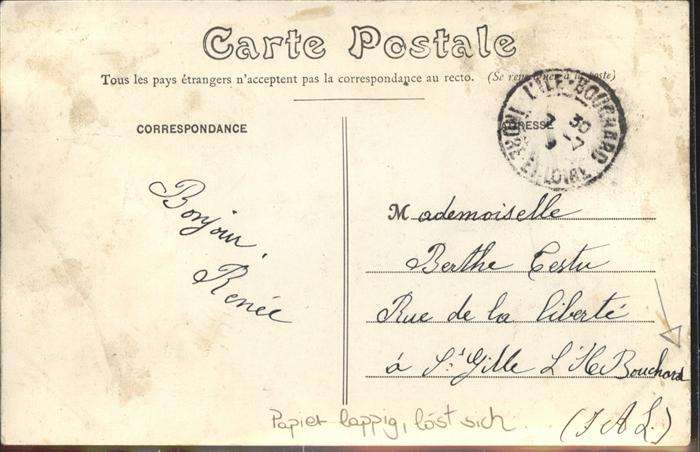 Carte Postale
Tous les pays étrangers n'acceptent pas la correspondance au recto. (Se renseigner à la poste)
CORRESPONDANCE
ADRESSE
L'ILE-BOUCHARD
INDRE-ET-LOIRE
30
Bonjour,
Renée
Mademoiselle
Berthe Testu
Rue de la liberté
à St Gille L'Ile Bouchard
(I A L.)
Papier lappig, löst sich